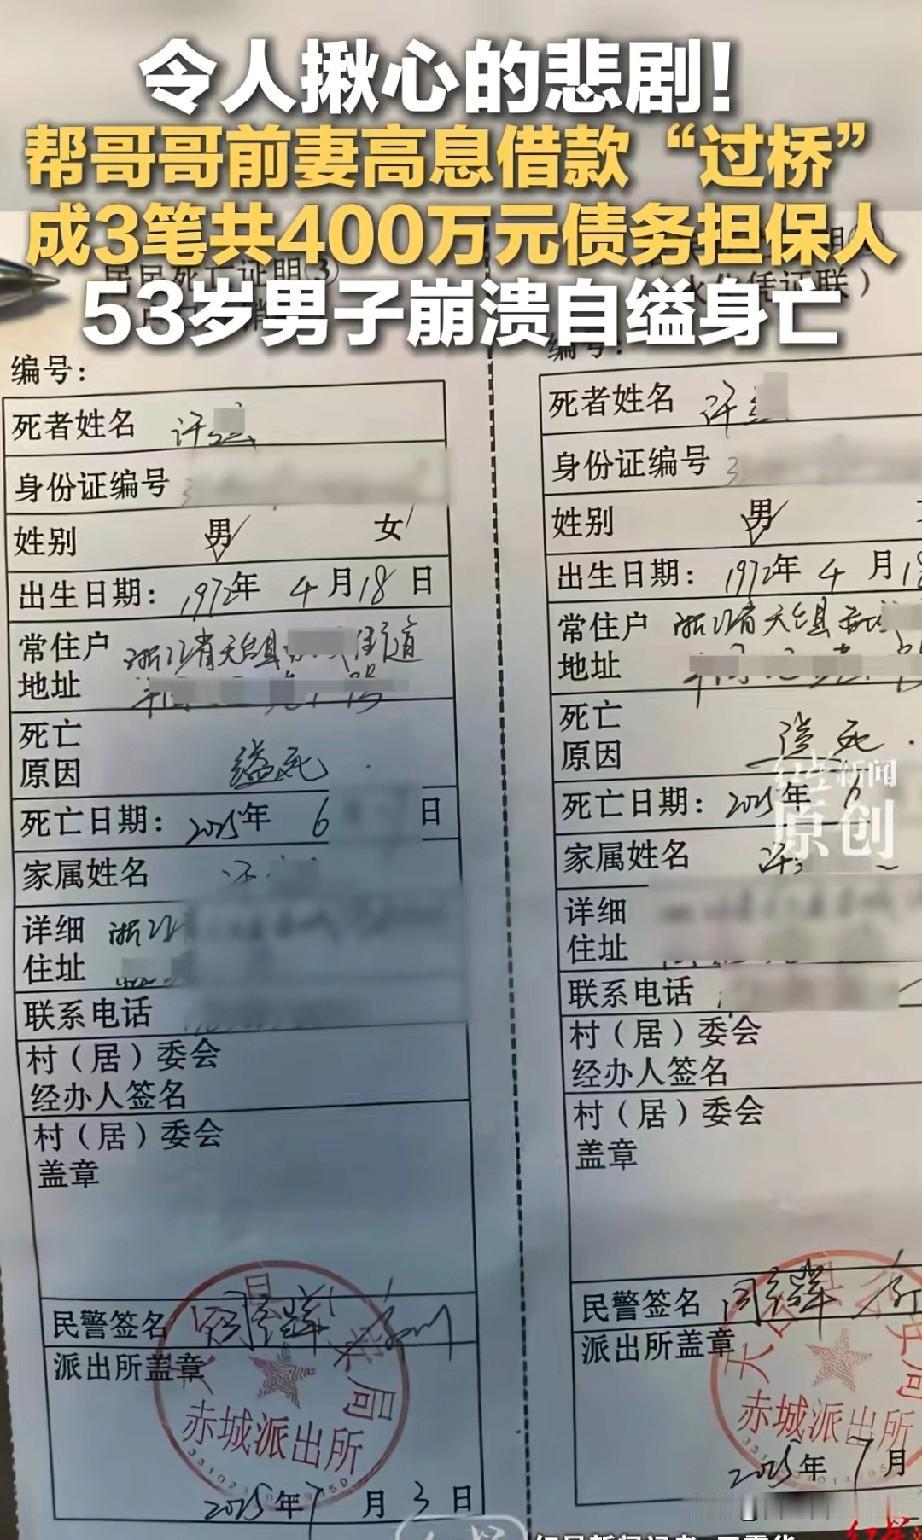 令人揪心的悲剧！
帮哥哥前妻高息借款“过桥”
成3笔共400万元债务担保人
53岁男子崩溃自缢身亡
居民死亡证明(3)
火化凭证联）
编号：
死者姓名 许
身份证编号 3
姓别 男 女
出生日期： 1972年 4月18日
常住户地址 浙江省天台县 街道
死亡原因 缢死
死亡日期： 2025年 6 日
家属姓名 许
详细住址 浙江省
联系电话
村（居）委会
经办人签名
村（居）委会
盖章
民警签名
派出所盖章
局
赤城派出所
2025年7月3日
编号：
死者姓名 许
身份证编号 3
姓别 男
出生日期： 1972年 4月18
常住户地址 浙江省天台县
死亡原因 缢死
死亡日期： 2025年 6
家属姓名 许
详细住址
联系电话
村（居）委会
经办人签名
村（居）委会
盖章
民警签名
派出所盖章
天 公 局
赤城派出所
2025年7月
红星新闻
原创